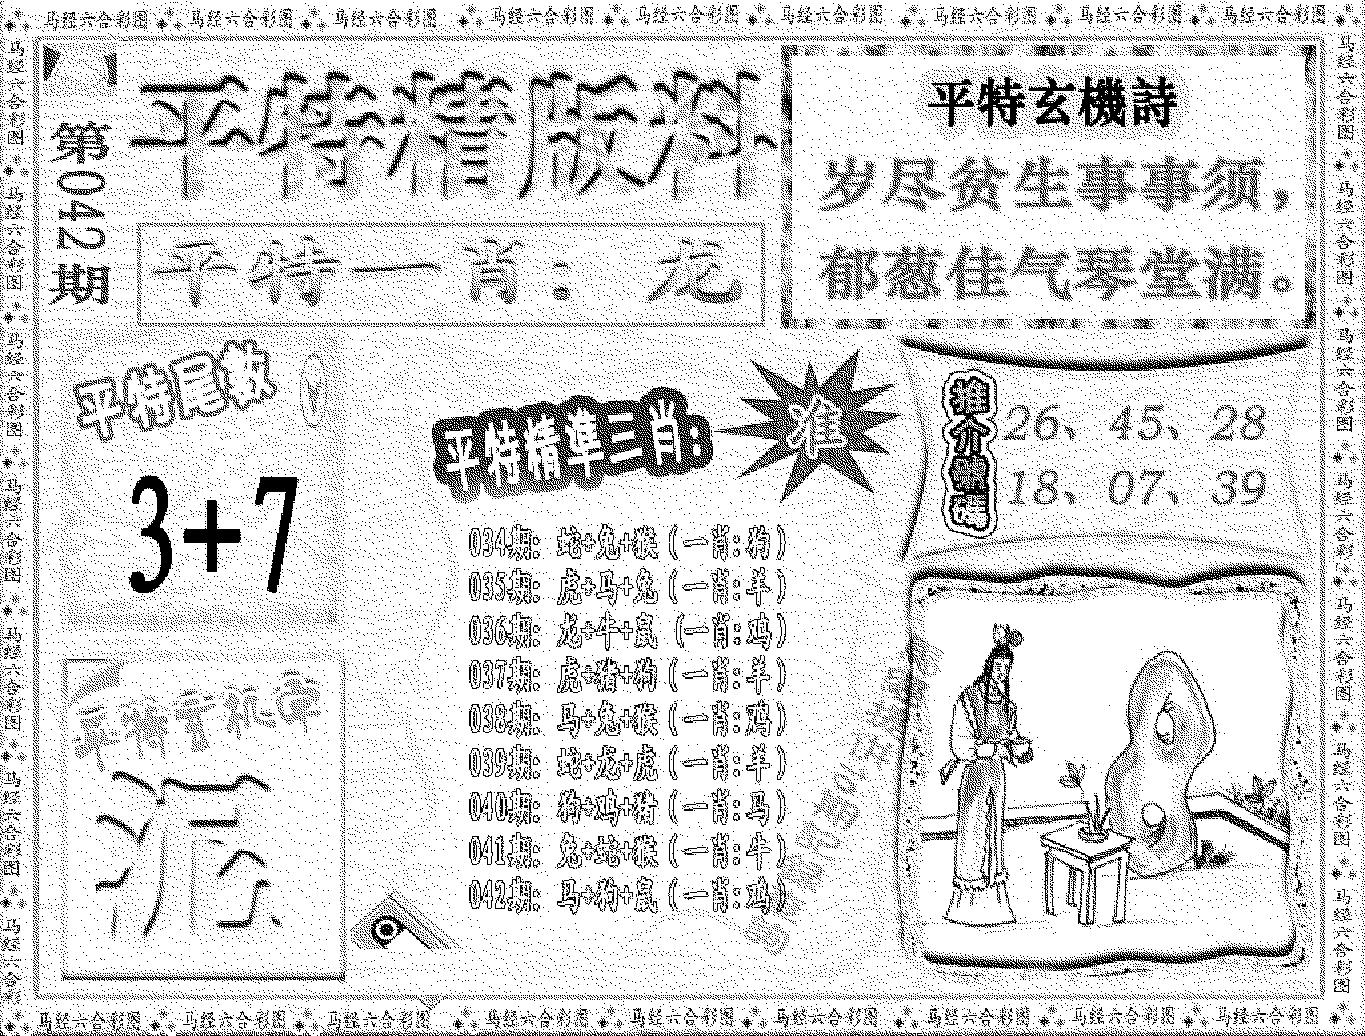 马经六合彩图 马经六合彩图 马经六合彩图 马经六合彩图 马经六合彩图 马经六合彩图 马经六合彩图 马经六合彩图 马经六合彩图
第042期
平特精版料
平特一肖：龙
平特玄機詩
岁尽贫生事事须，
郁葱佳气琴堂满。
平特尾数
3+7
平特精準三肖：
准
034期：蛇+兔+猴（一肖：狗）
035期：虎+马+兔（一肖：羊）
036期：龙+牛+鼠（一肖：鸡）
037期：虎+猪+狗（一肖：羊）
038期：马+兔+猴（一肖：鸡）
039期：蛇+龙+虎（一肖：羊）
040期：狗+鸡+猪（一肖：马）
041期：兔+蛇+猴（一肖：牛）
042期：马+狗+鼠（一肖：鸡）
推介號碼
26、45、28
18、07、39
平特玄机字
马经六合彩图 马经六合彩图 马经六合彩图 马经六合彩图 马经六合彩图 马经六合彩图 马经六合彩图 马经六合彩图 马经六合彩图